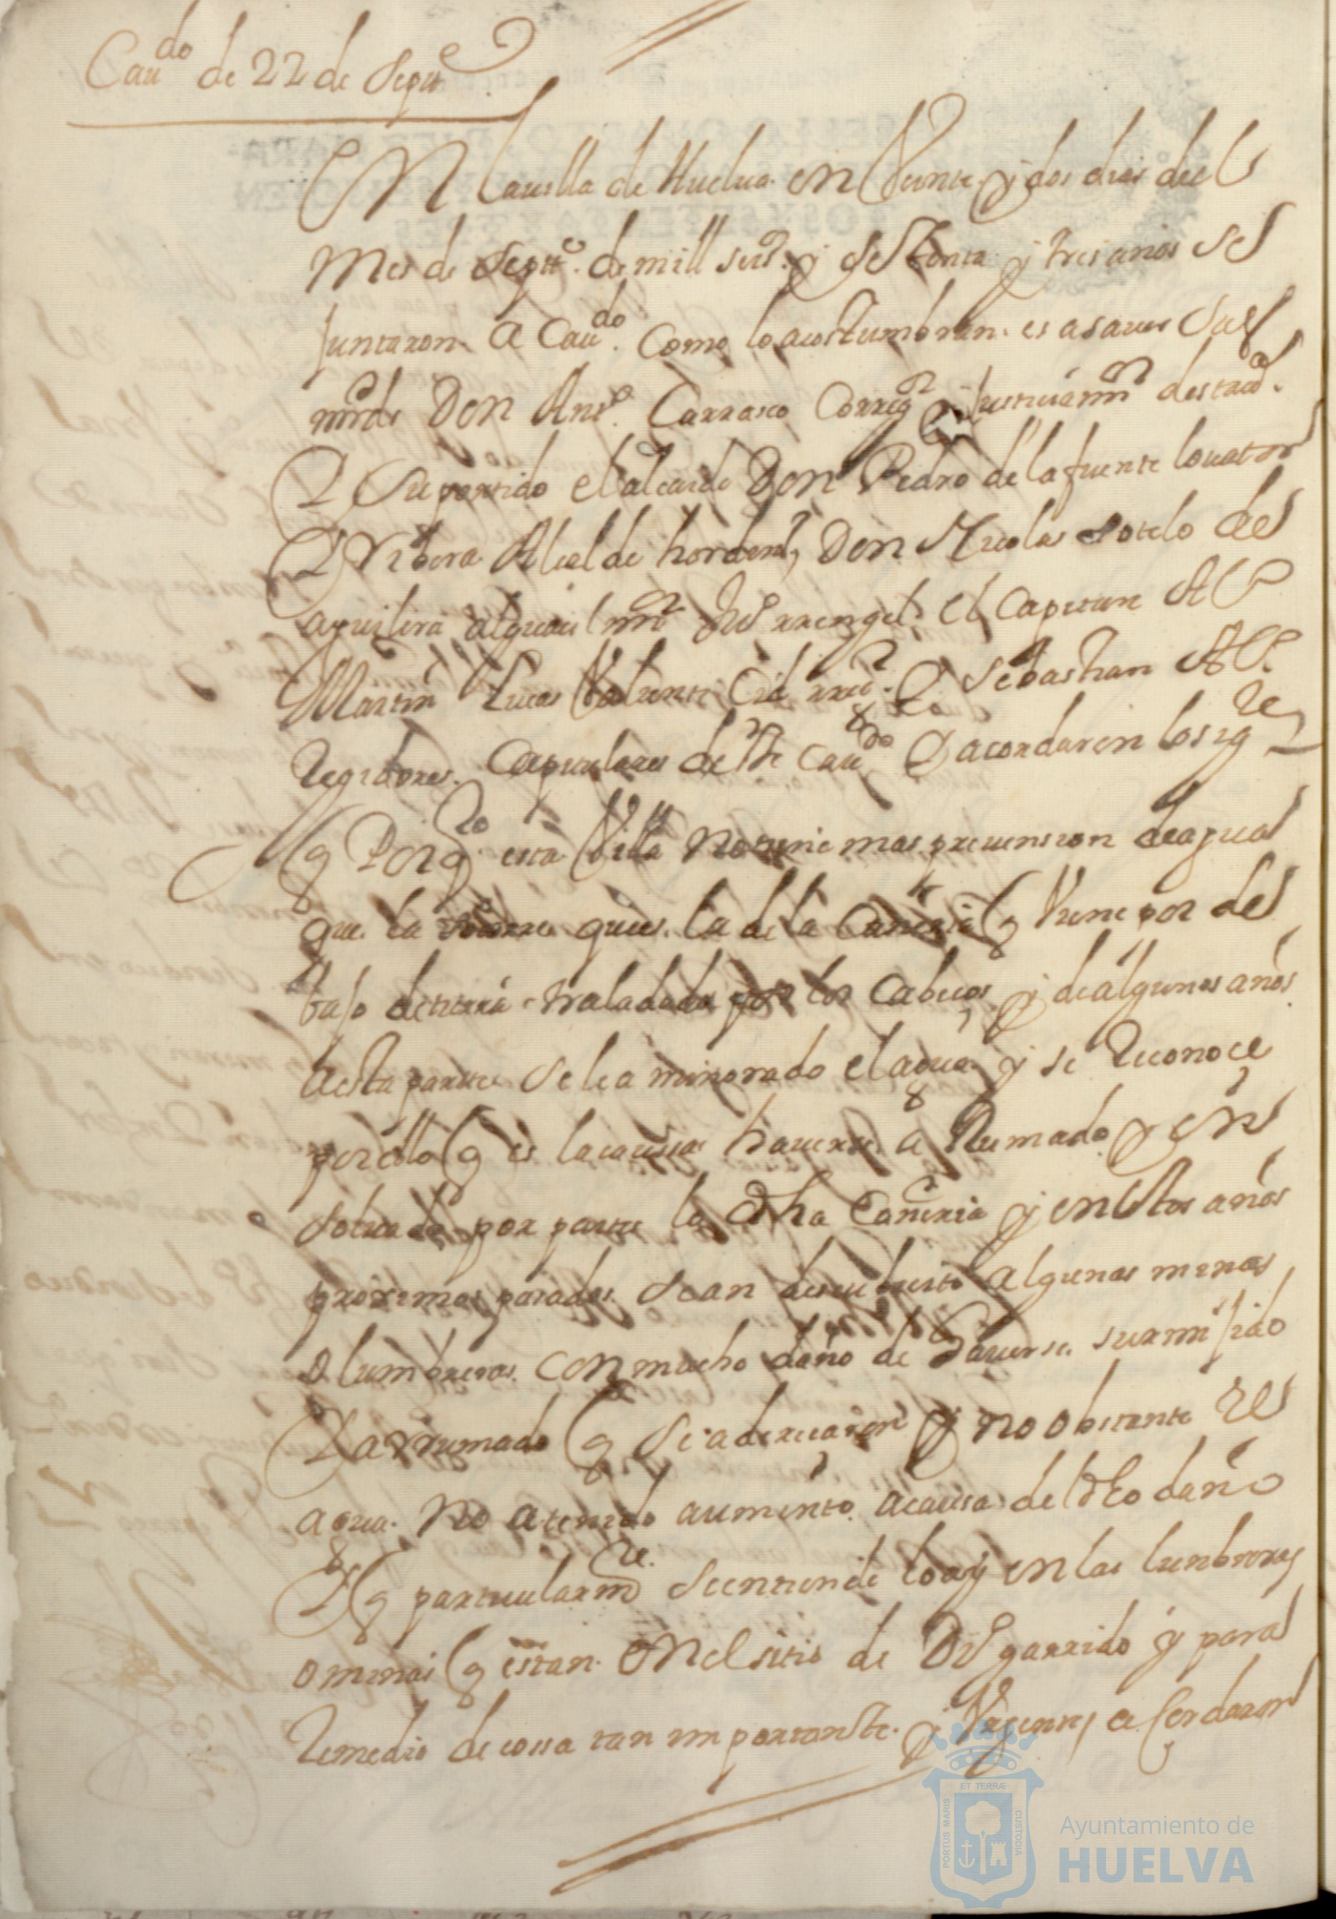 Cau.do de 22 de Sept.e
En la villa de Huelva en Veinte y dos dias del
Mes de Sept.e de mill seis.s y setenta y tres años se
juntaron a Cau.do Como lo acostumbran es a saver Sus
mrds Don Ant.o Carrasco Corrg.or y Justicia m.or desta v.a
Y Su partido el alcaide Don Pedro de la fuente lovaton
Y Ribera Alcalde hordin.o Don Nicolas sotelo de
aguilera alguacil m.or Ju.o rrengel El Capitan Al.o
Martin Lucas Valiente Cid y Sebastian Al.o
Regidores Capitulares deste Cau.do Y acordaron lo sig.te
q Por q.to esta Villa no tiene mas prevension de agua
que la que es la de la Cañeria q Viene por de
bajo de tierra taladada por los Cabecos y de algunos años
a esta parte se le a minorado el agua y se Reconoce
por ello q es la caussa haverse a Rumado y en
solvado por partes la dha Cañeria y en estos años
proximos pasados se an descubierto algunas minas
o lumbreras con mucho daño de haverse sumido
Y arrumado q se aderecaron y no obstante el
agua no a tenido aumento a causa del dho daño
Y q particularm.te se entiende lo ay en las lunbreras
o minas q estan en el sitio de Ju.o garrido y para
Remedio de cossa tan importante y Urgente acordaron
PORTUS MARIS ET TERRÆ CUSTODIA
Ayuntamiento de
HUELVA